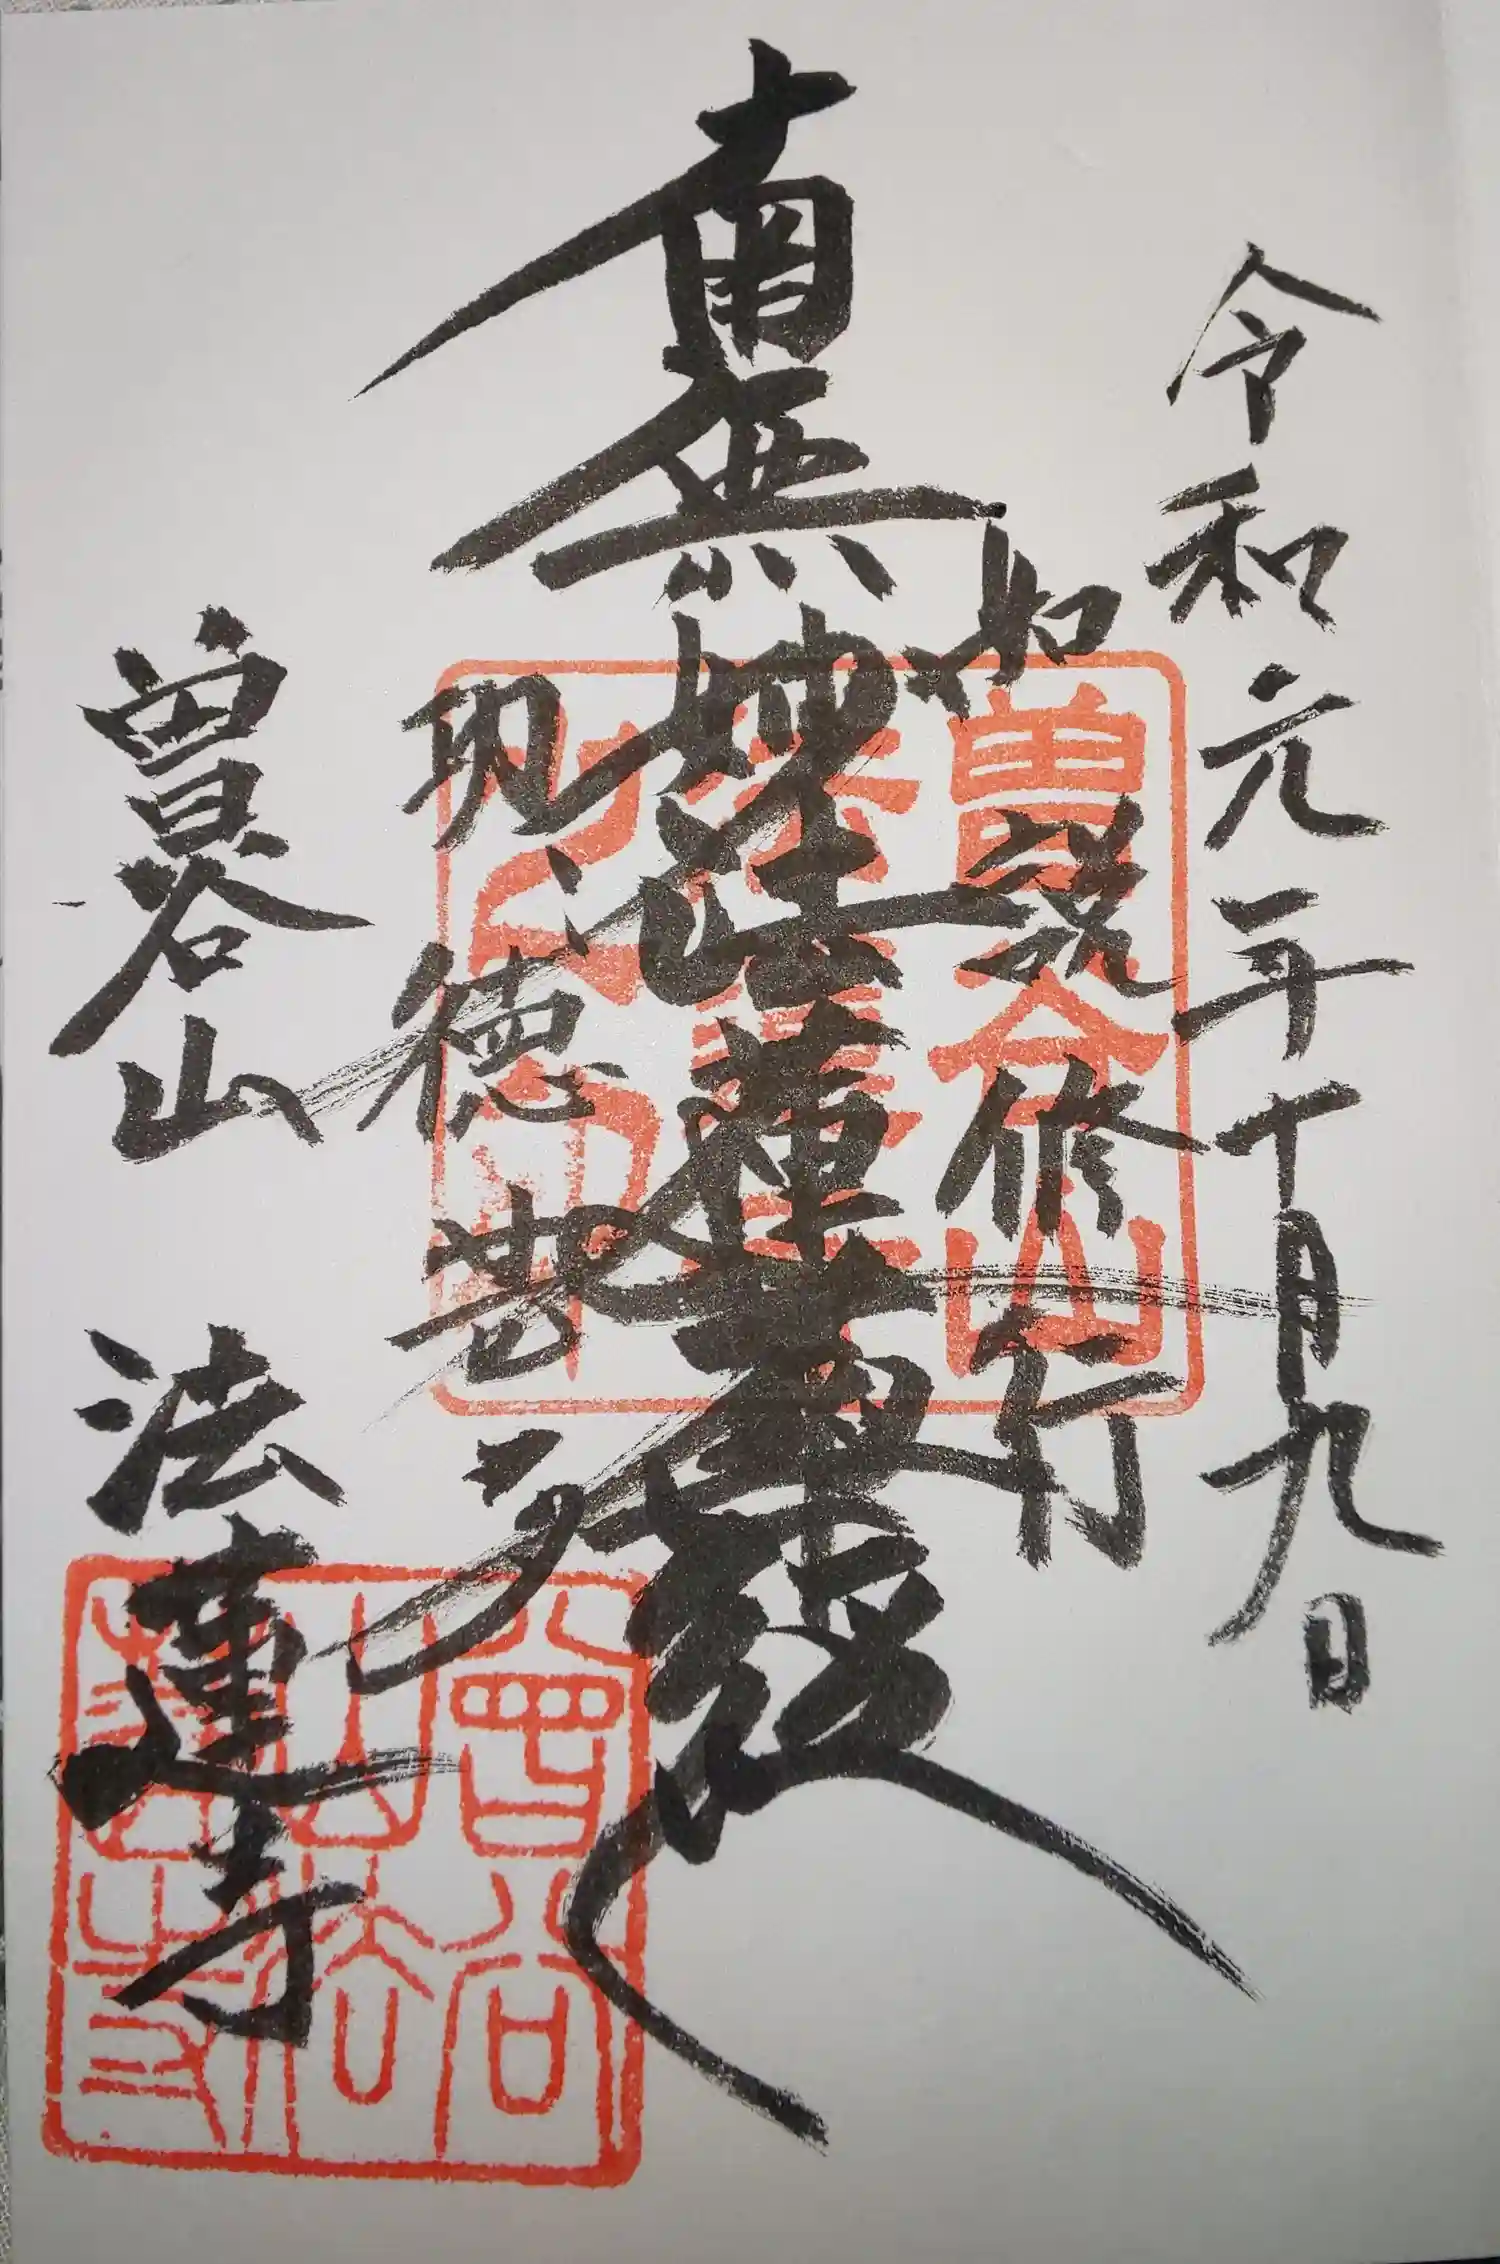 令和元年十月九日
如説修行
南無妙法蓮華経
功徳甚多
曽谷山
法蓮寺
曽谷山
法蓮寺
之印